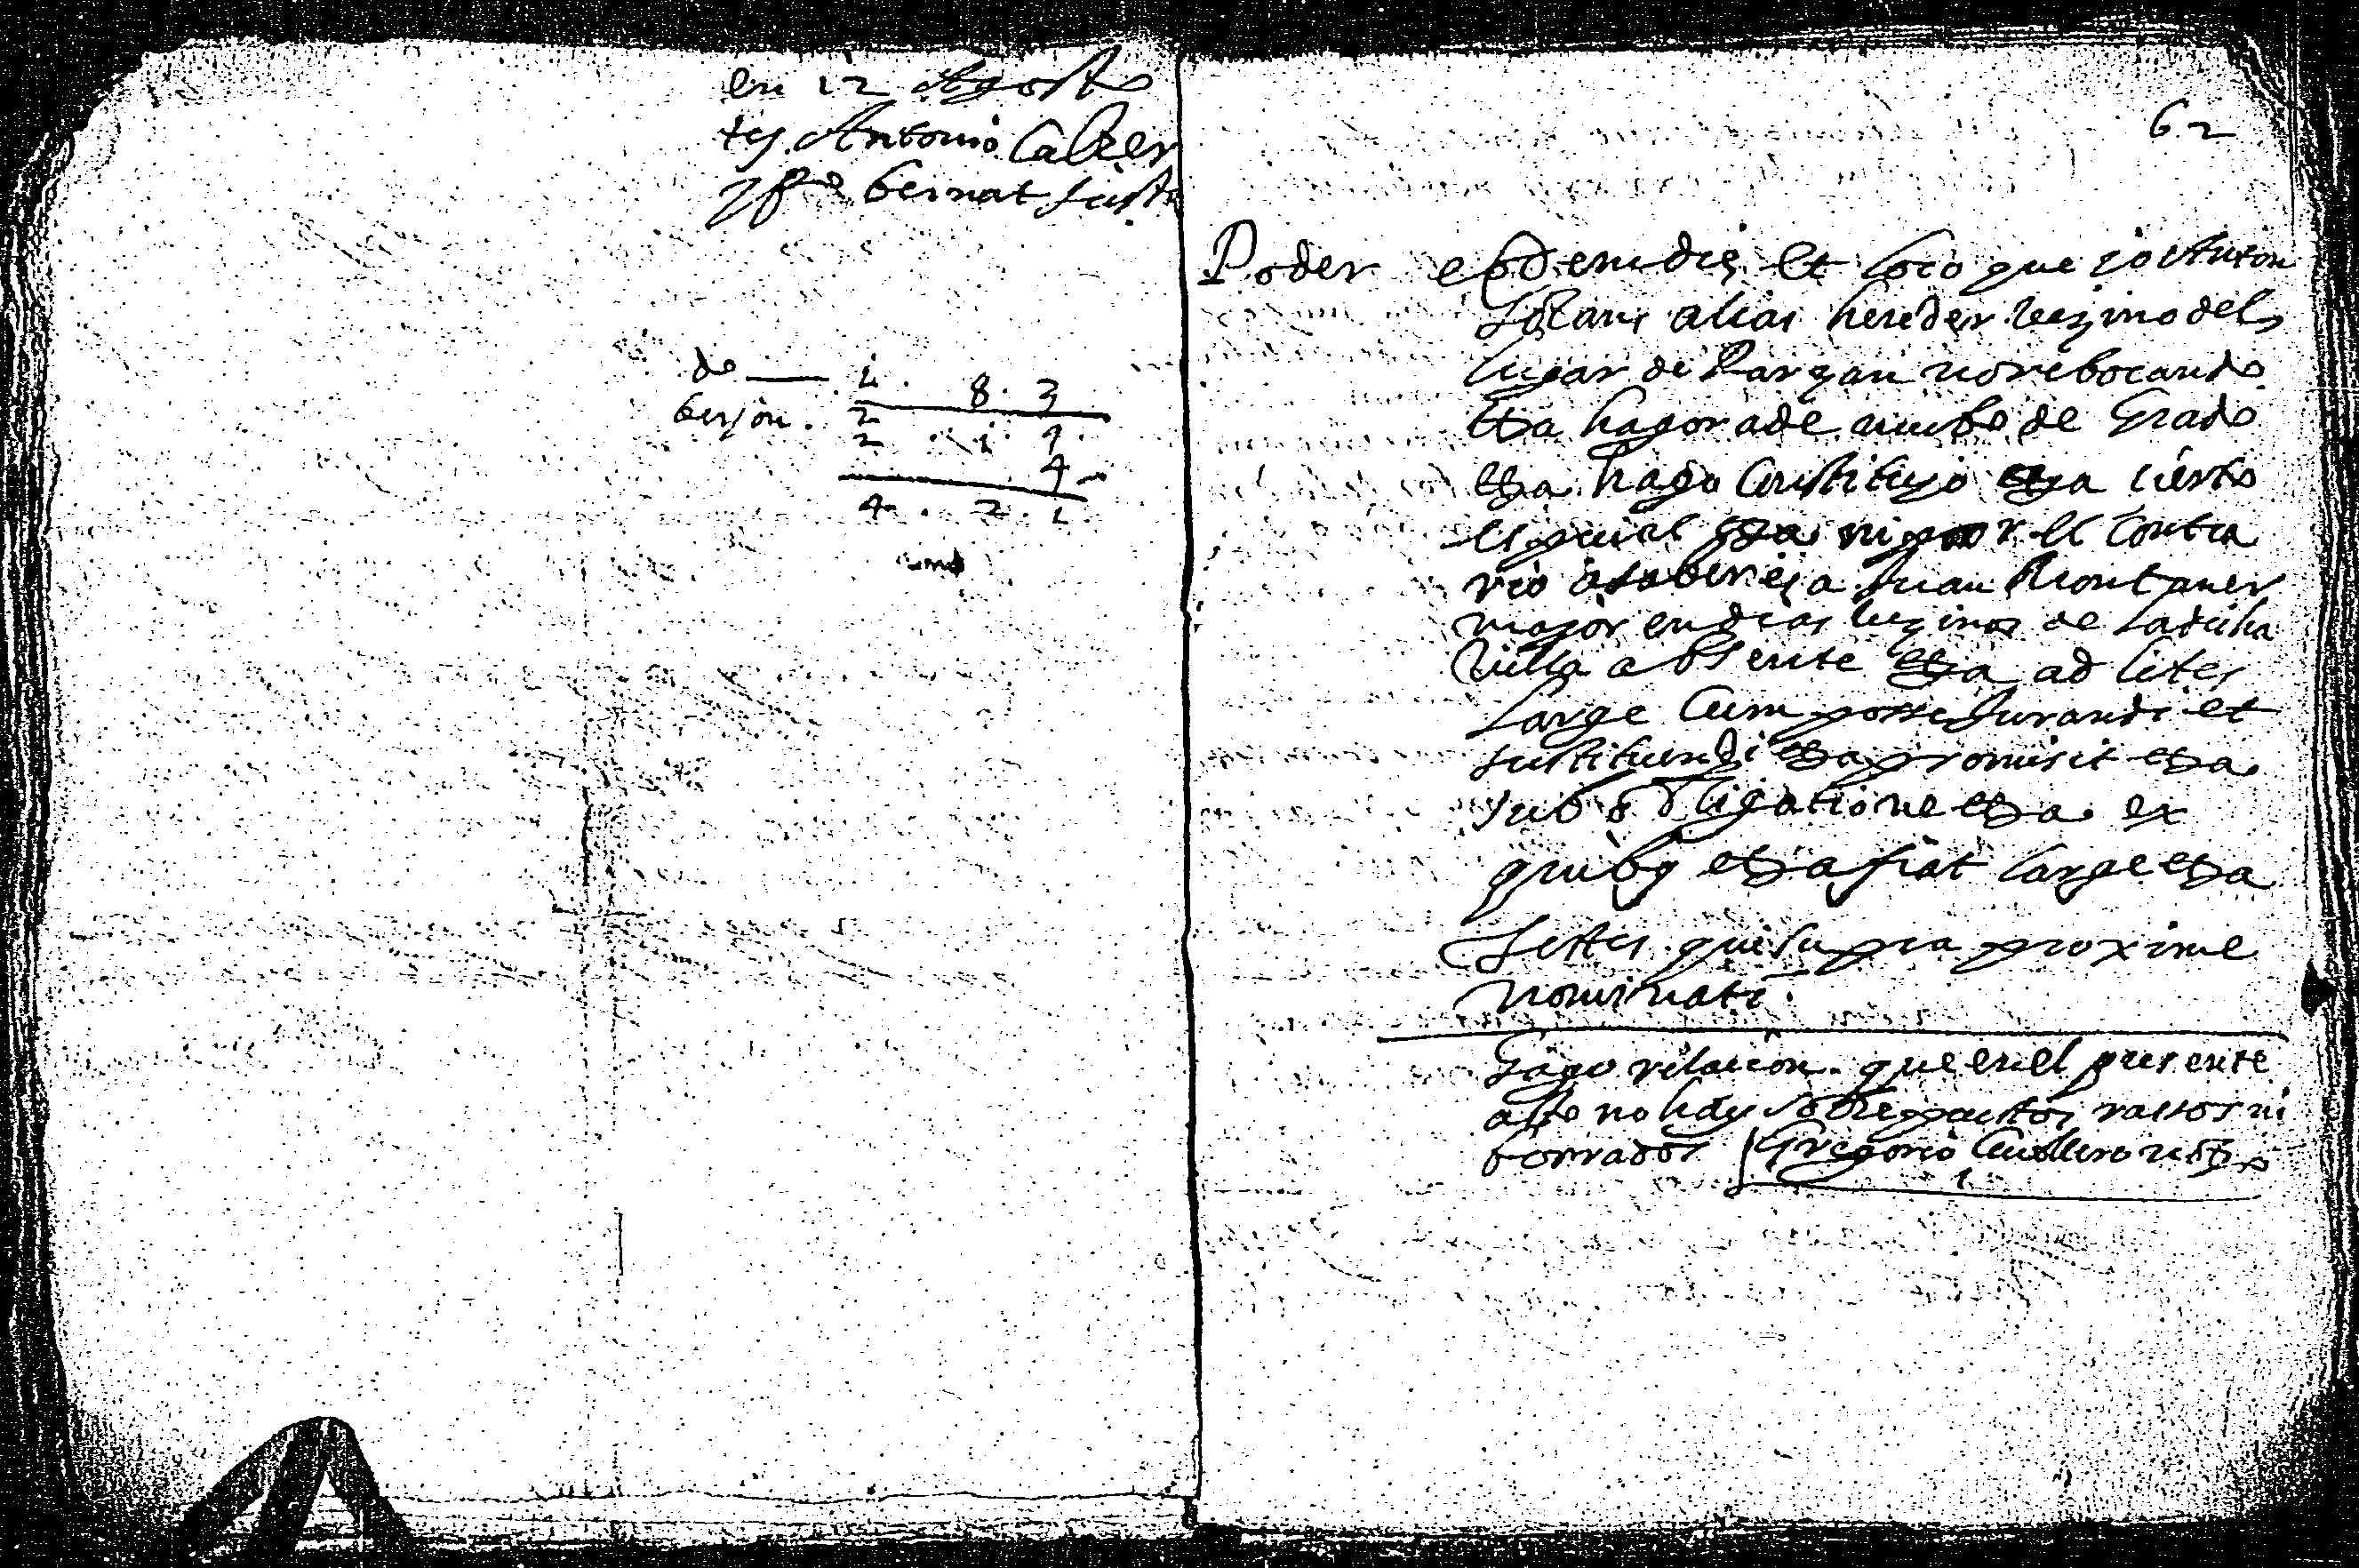 en 12 Agosto
tes. Antonio Calber
Bernat Just
62
de —— 1 . 8 . 3
berjon . 2
2 . 1 . 9 .
4
4 . 2 . 1
Poder eodem die et loco que io Anton
Solans alias hereder vezino del
lugar de Parzan no rebocando
etza hagora de nuebo de Grado
etza hago Constituyo etza cierto
espeçial etza ni por el Contra
rio asaber es a Juan Montaner
mayor en dias vezino de la dicha
Villa absente etza ad lites
large Cum posse Jurandi et
sustituendi etza promisit etza
sub obligatione etza ex
quibus etza fiat large etza
Testes qui supra proxime
nominati
Hago relacion que en el presente
acto no hay sobrepuestos rassos ni
borrados Gregorio